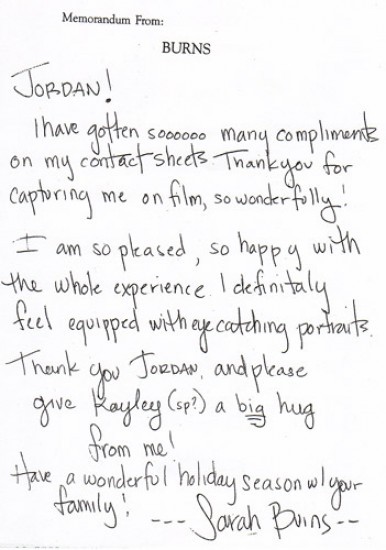 Memorandum From:
BURNS
JORDAN!
I have gotten soooooo many compliments
on my contact sheets Thankyou for
capturing me on film, so wonderfully!
I am so pleased, so happy with
the whole experience. I definitaly
feel equipped with eye catching portraits.
Thank you JORDAN, and please
give Kayley (sp?) a big hug
from me!
Have a wonderful holiday season w/ your
family!
--- Sarah Burns --